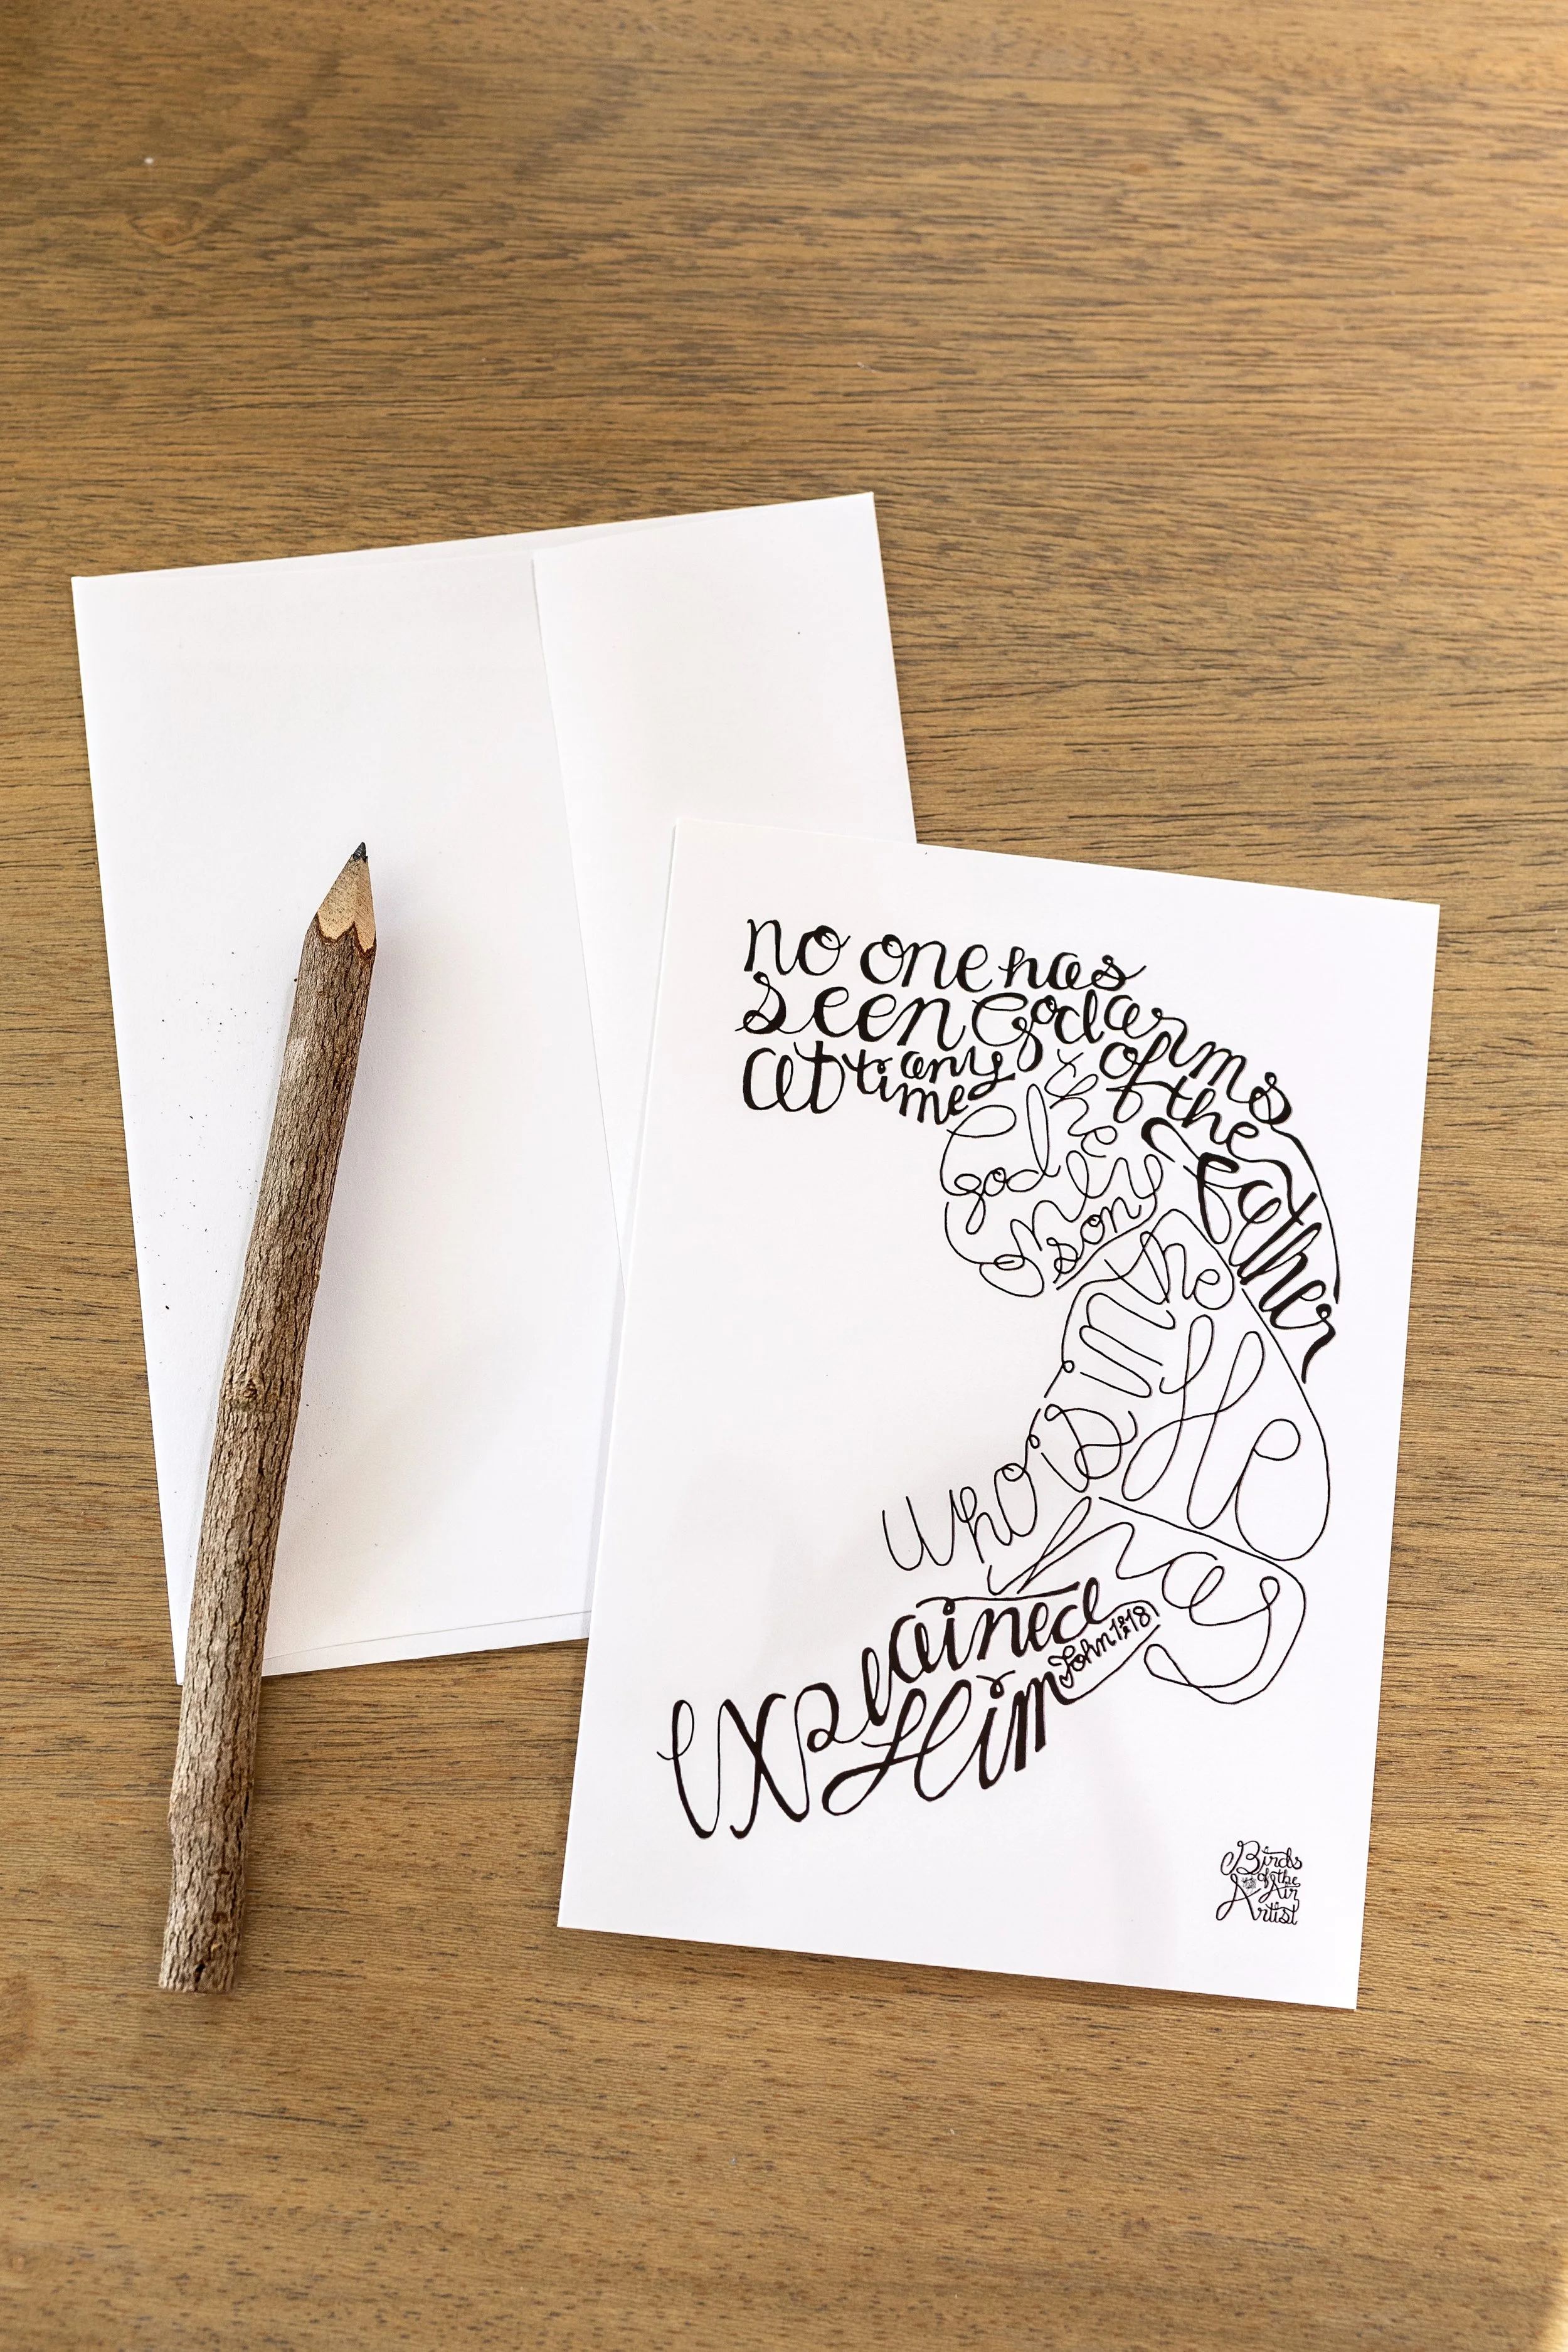 no one has
seen God
at any
time
the
only
God
son
who is in the
arms
of the
father
He
has
explained
Him
John 1:18
Birds
of the
Air
Artist